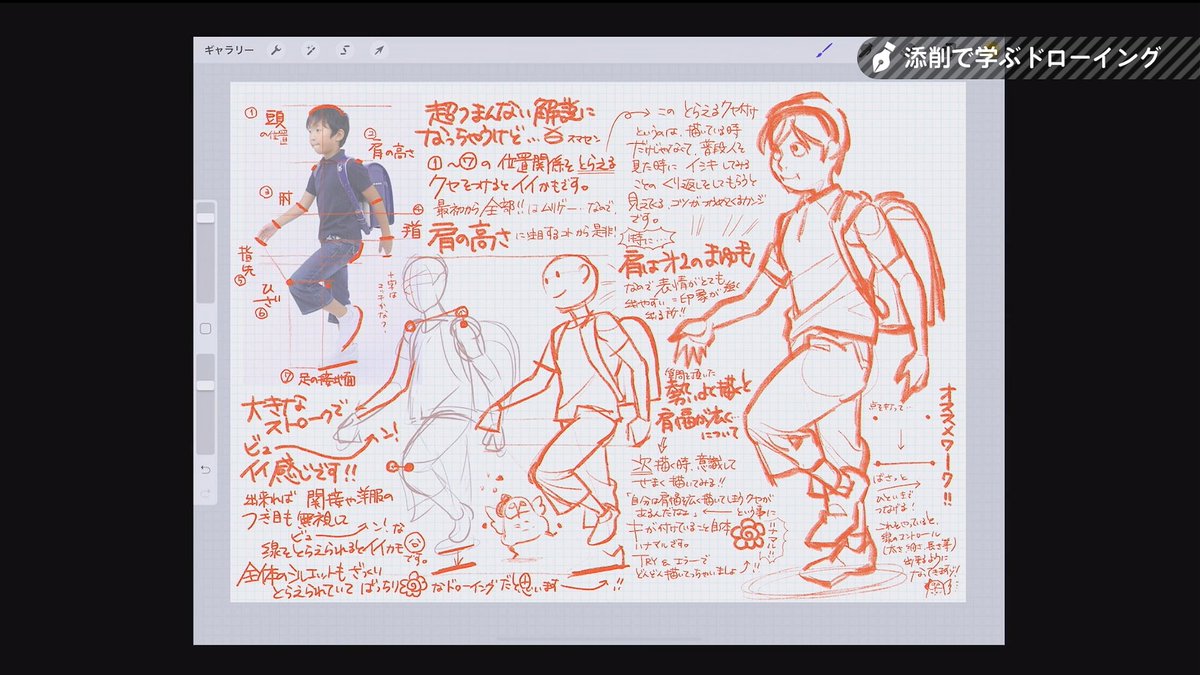 ギャラリー
添削で学ぶドローイング
① 頭
の位置
② 肩の高さ
③ 肘
④
指先
⑤
ひざ
⑥
⑦ 足の接地面
超つまんない解説に
なっちゃうけど… スマセン
①〜⑦の位置関係をとらえる
クセをつけるとイイかもです。
最初から/全部!!はムリゲー
肩の高さ
このとらえるクセ付け
というのは、描いている時
だけじゃなくて、普段人を
見た時にイシキしてみる
です。
特に…
肩は第2のまゆ毛
なので表情がとても
出やすい=印象が強く
出る所!!
質問を頂いた
勢いよく描くと
肩幅が広く…
について
次描く時、意識して
せまく描いてみる!!
「自分は肩幅を広く描いてしまうクセが
あるんだなぁ」という事に
キが付けていること自体
ハナマルです。
TRY & エラーで
どんどん描いてっちゃいましょ!!
大きな
ストロークで
ビューーン!
イイ感じです!!
出来れば 関接や洋服の
つぎ目も無視して
ビューーン!な
線でとらえられるとイイカモ
です。
全体のシルエットもざっくり
とらえられていて ばっちり なドローイングだと思います!!
オススメワーク!!
点を打って…
ばさっと
ひといきで
つなげる!
これをやっていると、
線のコントロール
(太さ・細さ・長さ等)
出来るように
なってきます!